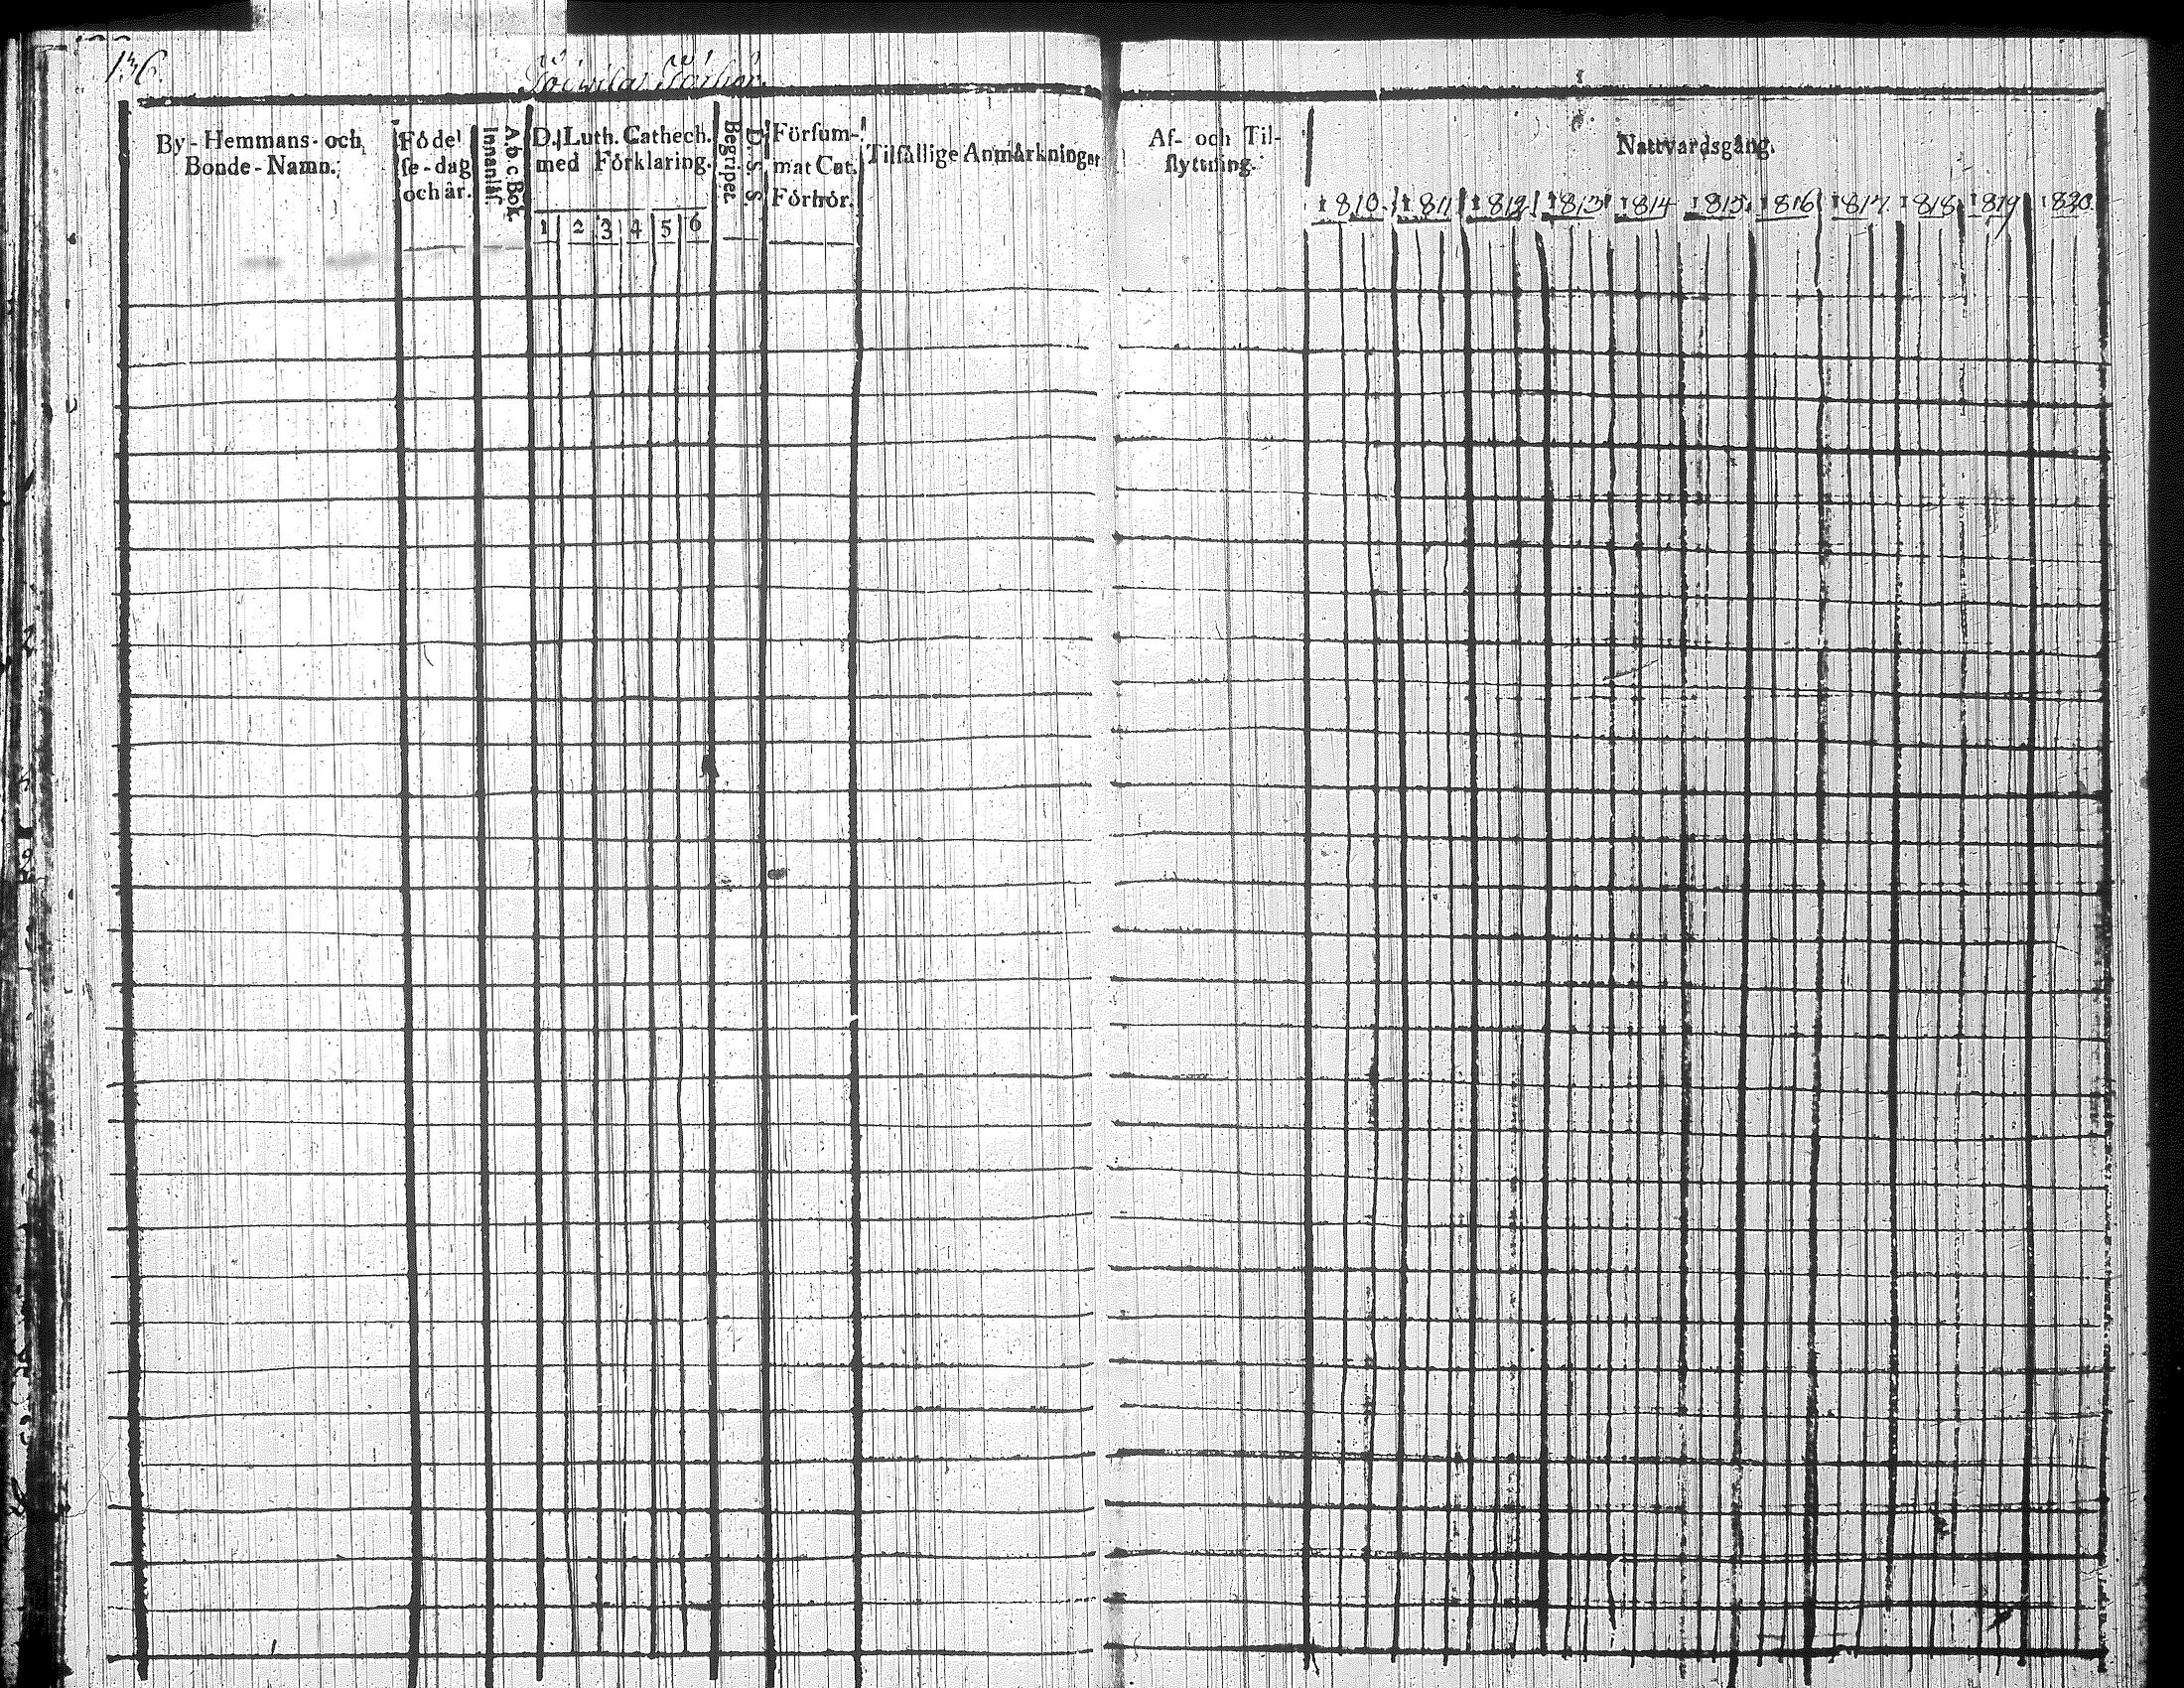 136
By-Hemmans-och
Bonde-Namn.
Födel
ſe-dag
och år.
A.b c Bok
Innanläſ.
D. Luth. Cathech.
med Förklaring.
1 2 3 4 5 6
Begriper
D. S. S.
Förſum-
mat Cat.
Förhör.
Tilfällige Anmärkningar
Af- och Til-
flyttning.
Nattvardsgång.
1810. 1811 1812 1813 1814 1815. 1816 1817. 1818. 1819 1820.